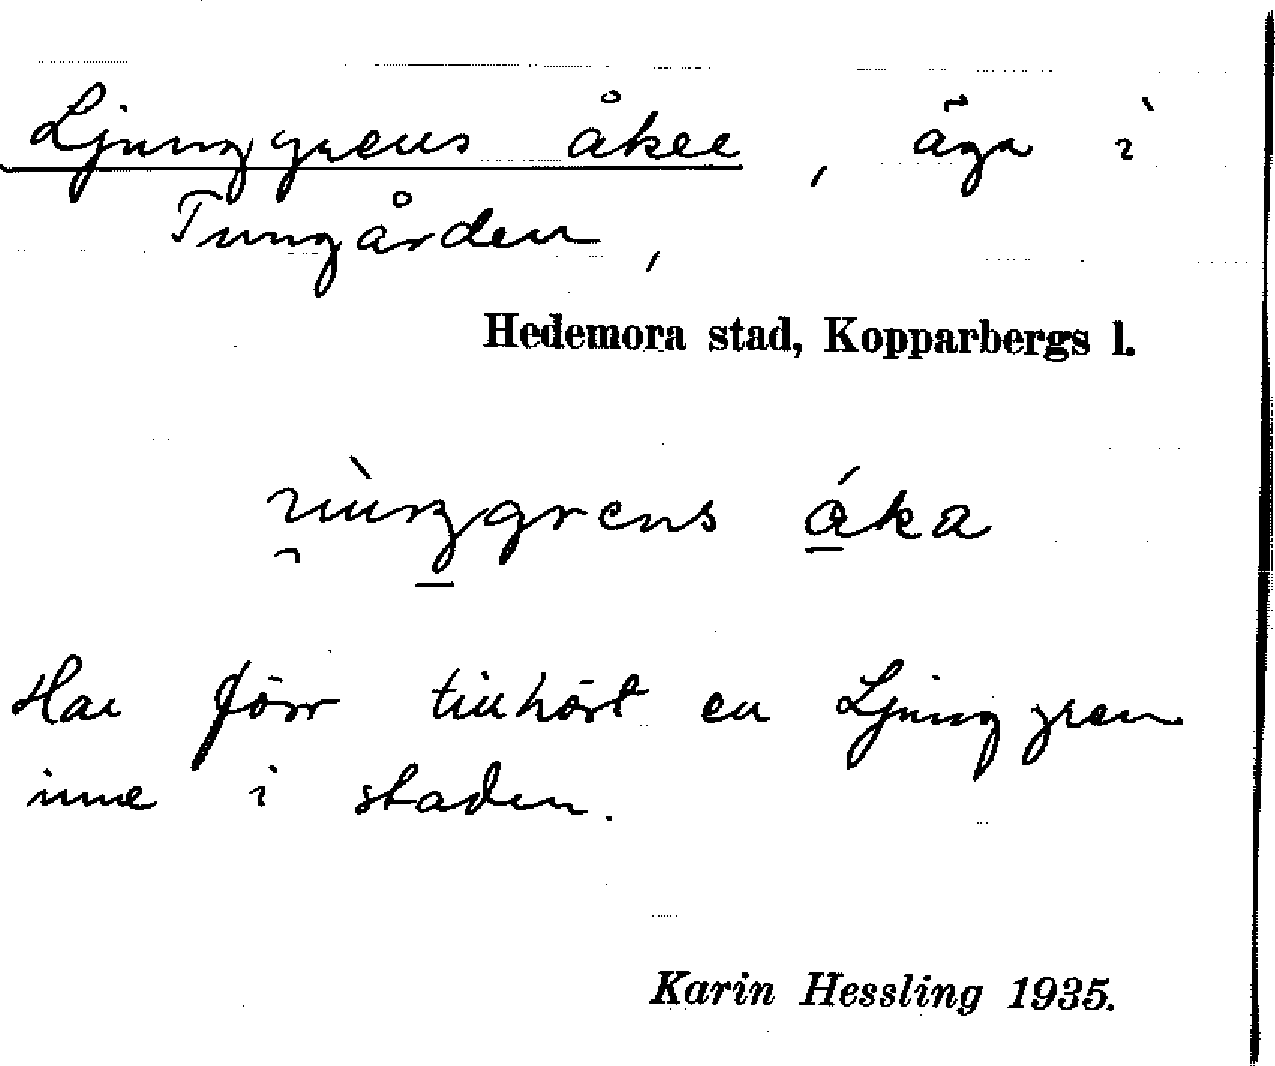 Ljunggrens åker, äga i
Tungården,
Hedemora stad, Kopparbergs l.
grens áka
Har förr tillhört en Ljunggren
inne i staden.
Karin Hessling 1935.